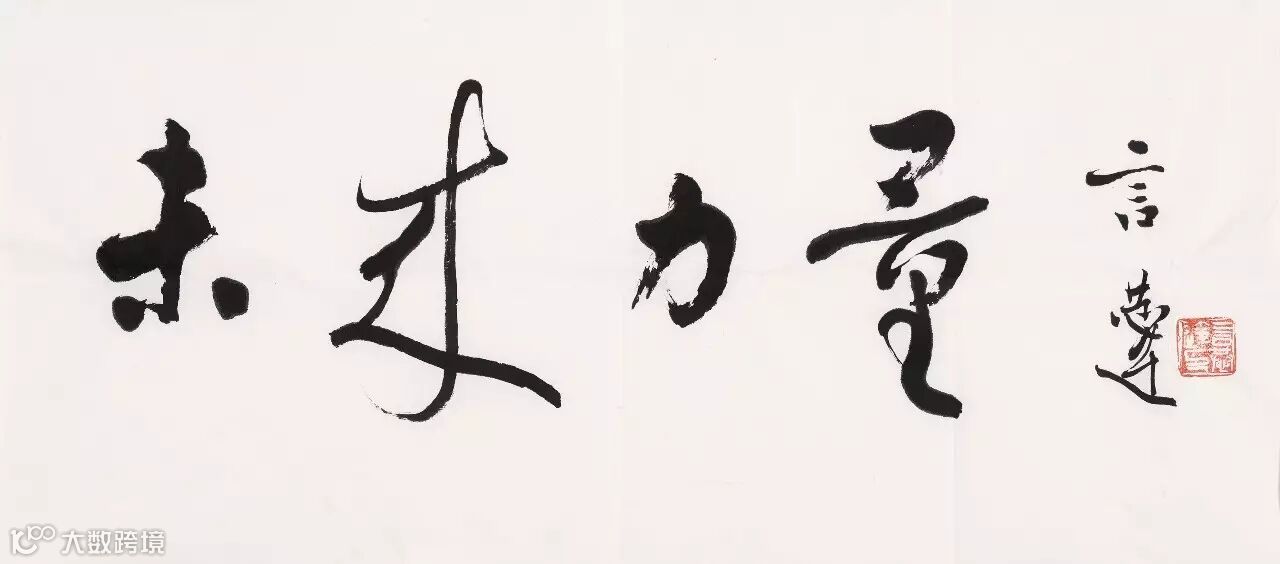 未来力量
言恭達
大数跨境